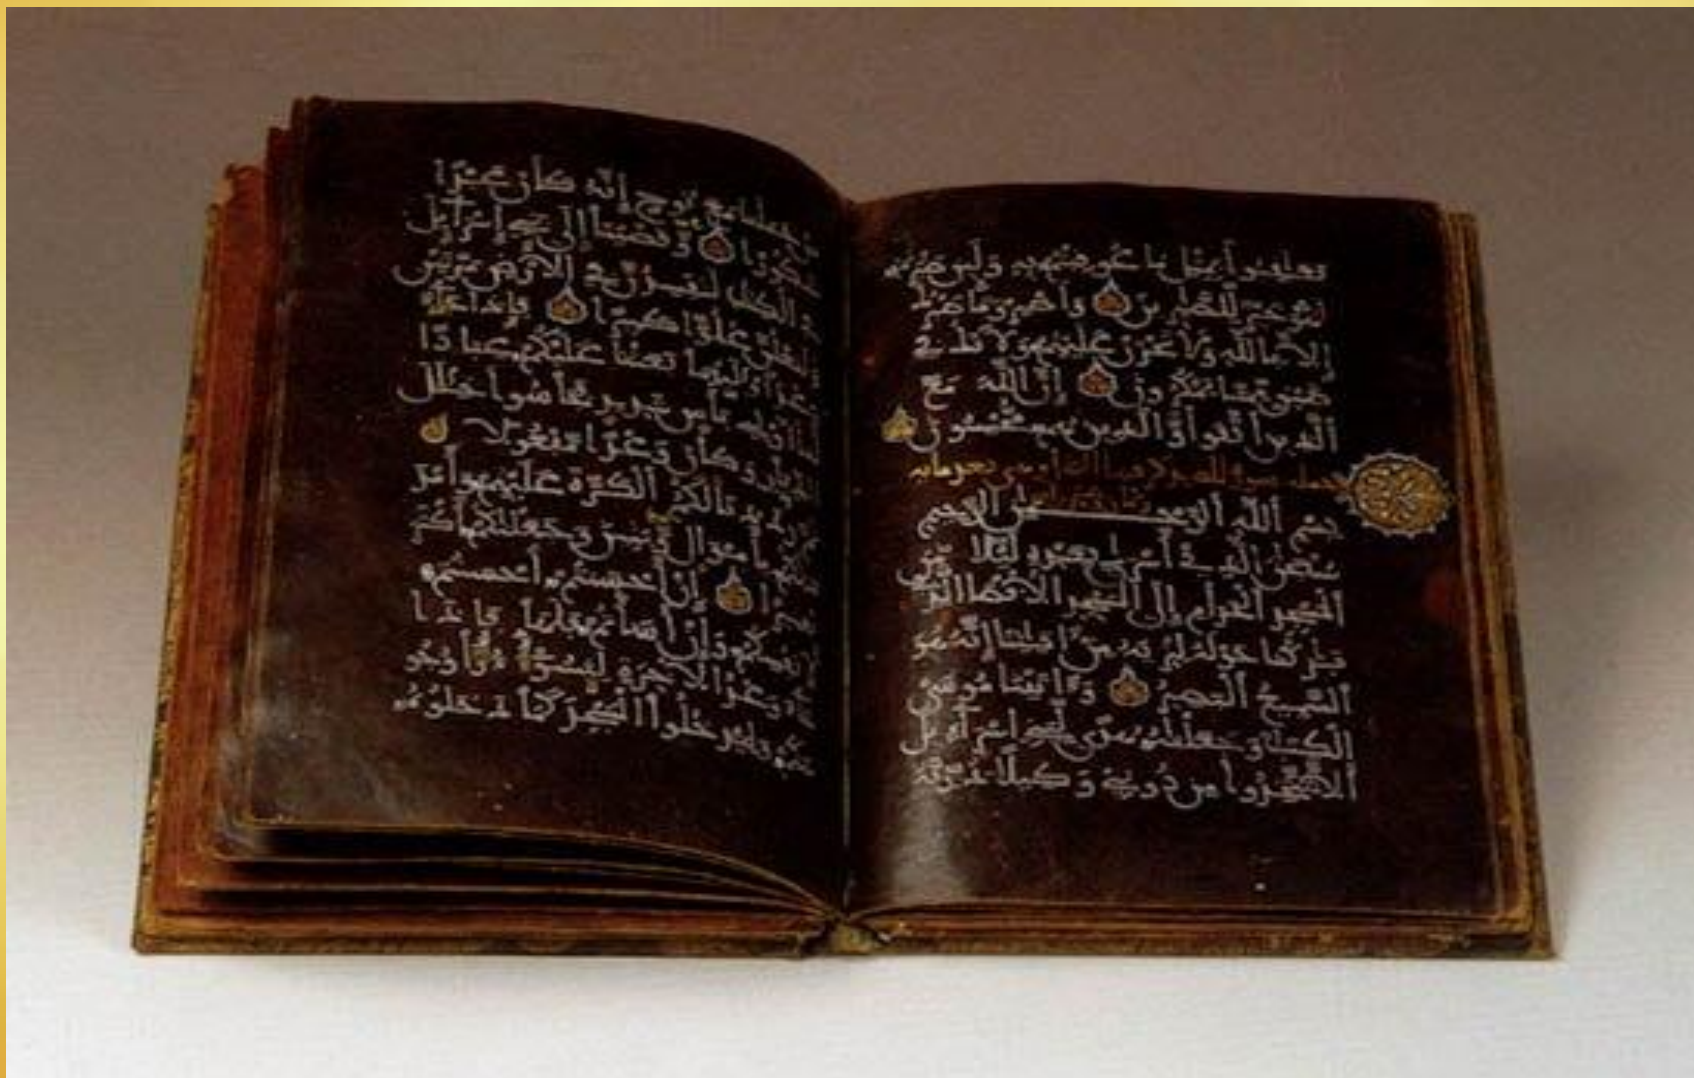 فعاقبوا بمثل ما عوقبتم به ولئن صبرتم
لهو خير للصبرين واصبر وما صبرك
إلا بالله ولا تحزن عليهم ولا تك في
ضيق مما يمكرون إن الله مع
الذين اتقوا والذين هم محسنون
بسم الله الرحمن الرحيم
سبحن الذي أسرى بعبده ليلا من
المسجد الحرام إلى المسجد الأقصا الذي
بركنا حوله لنريه من ءايتنا إنه هو
السميع البصير وءاتينا موسى
الكتب وجعلنه هدى لبني إسراءيل
ألا تتخذوا من دوني وكيلا ذرية
من حملنا مع نوح إنه كان عبدا
شكورا وقضينا إلى بني إسراءيل
في الكتب لتفسدن في الأرض مرتين
ولتعلن علوا كبيرا فإذا جاء
وعد أوليهما بعثنا عليكم عبادا
لنا أولي بأس شديد فجاسوا خلل
الديار وكان وعدا مفعولا
ثم رددنا لكم الكرة عليهم وأمدد
نكم بأموال وبنين وجعلنكم أكثر
نفيرا إن أحسنتم أحسنتم
لأنفسكم وإن أسأتم فلها فإذا
جاء وعد الآخرة ليسوءوا وجو
هكم وليدخلوا المسجد كما دخلوه